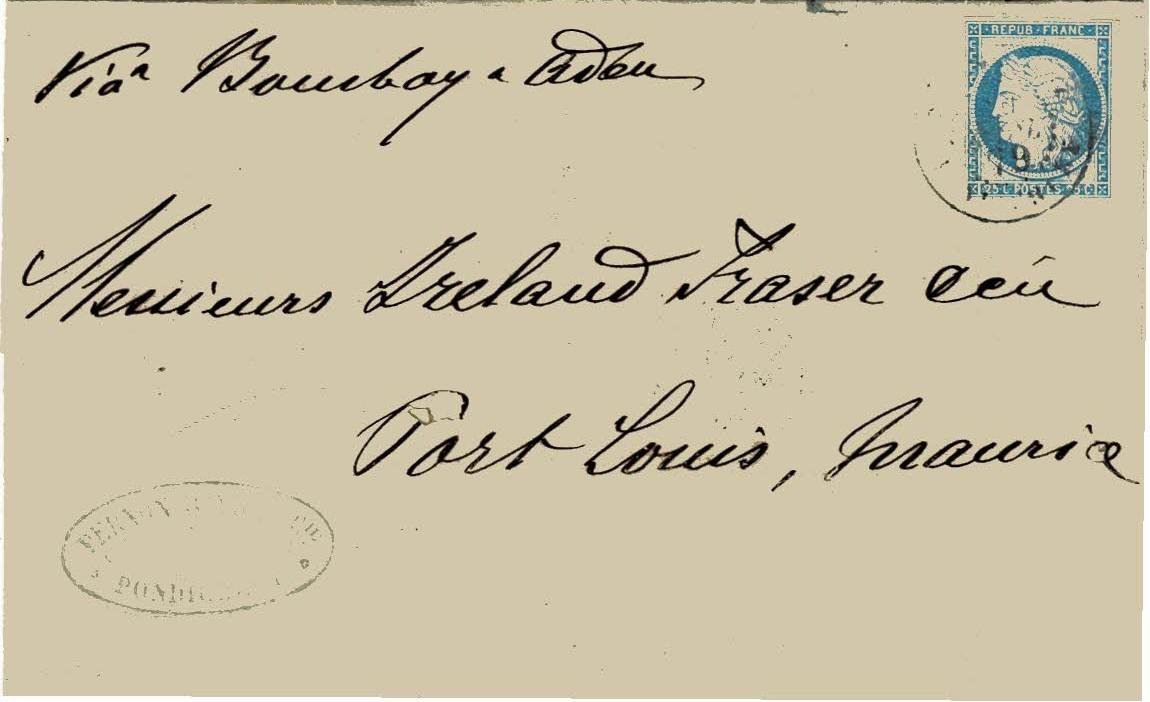 Via Bombay & Aden
REPUB · FRANC
19
25 C POSTES 25 C
Messieurs Ireland Fraser &Cie
Port Louis, Maurice
CIE